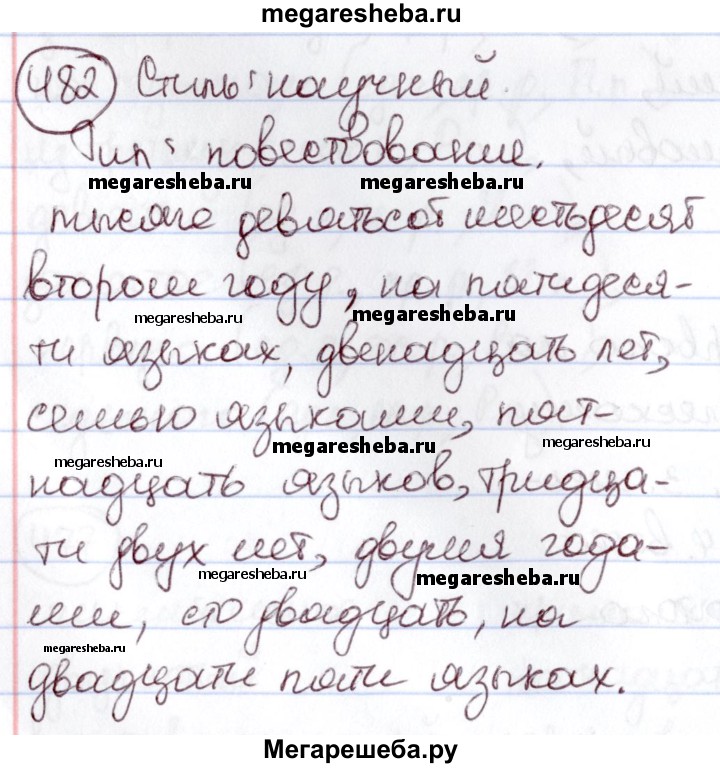 megaresheba.ru
482 Стиль: научный.
Тип: повествование.
megaresheba.ru megaresheba.ru
тысяча девятьсот шестьдесят
втором году, на пятидеся-
megaresheba.ru megaresheba.ru
ти языках, двенадцать лет,
семью языками, пят-
megaresheba.ru megaresheba.ru megaresheba.ru
надцать языков, тридца-
ти двух лет, двумя года-
megaresheba.ru megaresheba.ru
ми, сто двадцать, на
megaresheba.ru
двадцати пяти языках.
Мегарешеба.ру